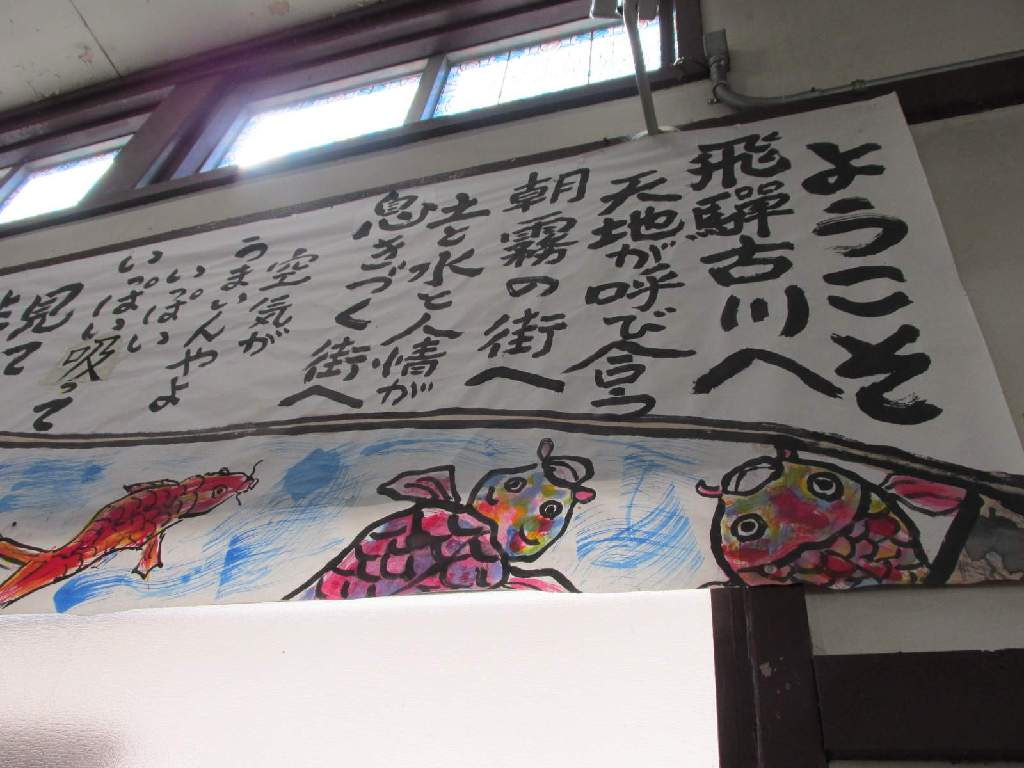 ようこそ
飛驒古川へ
天地が呼び合う
朝霧の街へ
土と水と人情が
息きづく街へ
空気が
うまいんやよ
いっぱい
いっぱい吸って